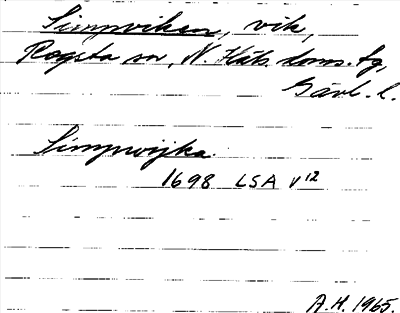 Simpviken, vik,
Rogsta sn, N. Häls. doms. tg,
Gävl. l.
Simpwijka
1698 LSA V12
A.H. 1965.